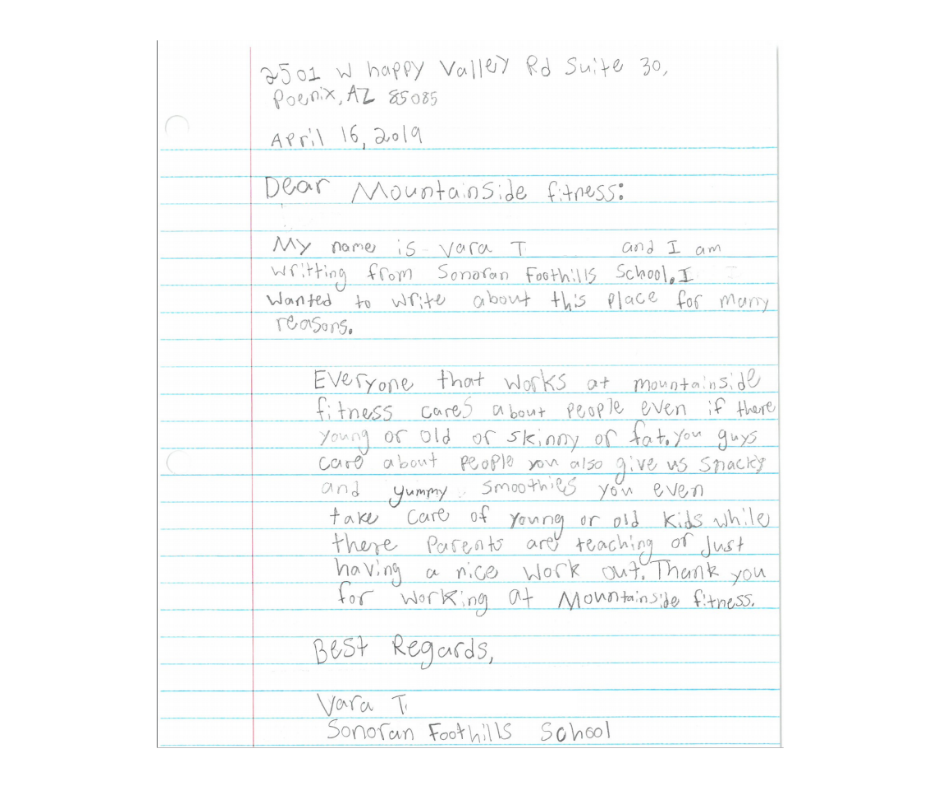 2501 W happy Valley Rd Suite 30,
Poenix, AZ 85085
April 16, 2019
Dear Mountainside fitness:
My name is Vara T and I am
writting from Sonoran Foothills School. I
wanted to write about this place for many
reasons.
Everyone that works at mountainside
fitness cares about people even if there
young or old or skinny or fat. you guys
care about people you also give us snacks
and yummy smoothies you even
take care of young or old kids while
there Parents are teaching or Just
having a nice work out. Thank you
for working at Mountainside fitness.
Best Regards,
Vara T.
Sonoran Foothills School